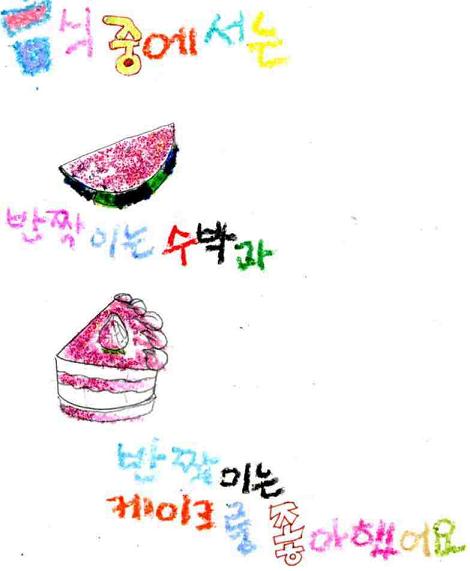 음식 중에서는
반짝이는 수박과
반짝이는
케이크를 좋아했어요